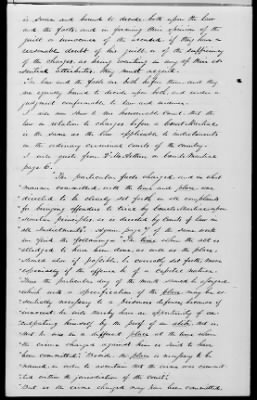 is sworn and bound to decide, both upon the law
and the facts, and in forming their opinion of the
guilt or innocence of the accused, if they have a
reasonable doubt of his guilt, or of the sufficiency
of the charges, as being wanting in any of their es-
sential attributes, they must acquit.
"The law and the facts are both before them and they
are equally bound to decide upon both, and under a
judgment conformable to law and evidence.
I am now that the Honorable Court that the
law in relation to charges before a Court Martial,
is the same as the law applicable to indictments
in the ordinary criminal courts of the country.
I will quote from on Courts Martial
page 6.
"The particular facts charged, and in what
manner committed, with the time and place, was
directed to be clearly set forth in all complaints
for bringing offenders to trial by Courts Martial upon
similar principles, as is decided by Courts of law in
all Indictments". Again, page 7 of the same work
we find the following: "The time when the act is
alledged to have been done, as well as the place,
should also if possible, be correctly set forth, more
especially if the offence be of a capital nature.
Thus the particular day of the month should be specified
which with a specification of the place may be es-
sentially necessary to a prisoners defence, because if
innocent he will thereby have an opportunity of ex-
culpating himself by the proof of an alibi, that is,
that he was in a different place at the time when
the crime charged against him is said to have
been committed". "Besides the place is necessary to be
named, in order to ascertain that the crime was commit-
ted within the jurisdiction of the court."
"But as the crime charged may have been committed